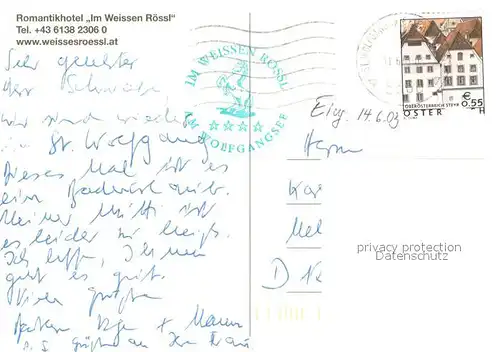 Romantikhotel „Im Weissen Rössl"
Tel. +43 6138 2306 0
www.weissesroessl.at
IM WEISSEN RÖSSL
AM WOLFGANGSEE
€ 0,55
OBERÖSTERREICH STEYR
Sehr geehrter
Herr Schwabe
wir sind wieder
in St. Wolfgang
Dieses Mal ist es
ein Badeurlaub.
Meiner Mutti ist
es leider zu heiß.
Ich hoffe, Ihnen
geht es gut.
Viele Grüße
+ Mama
P.S. Grüße an Ihre Frau
Eing. 14.6.03
Herrn
D
privacy protection
Datenschutz